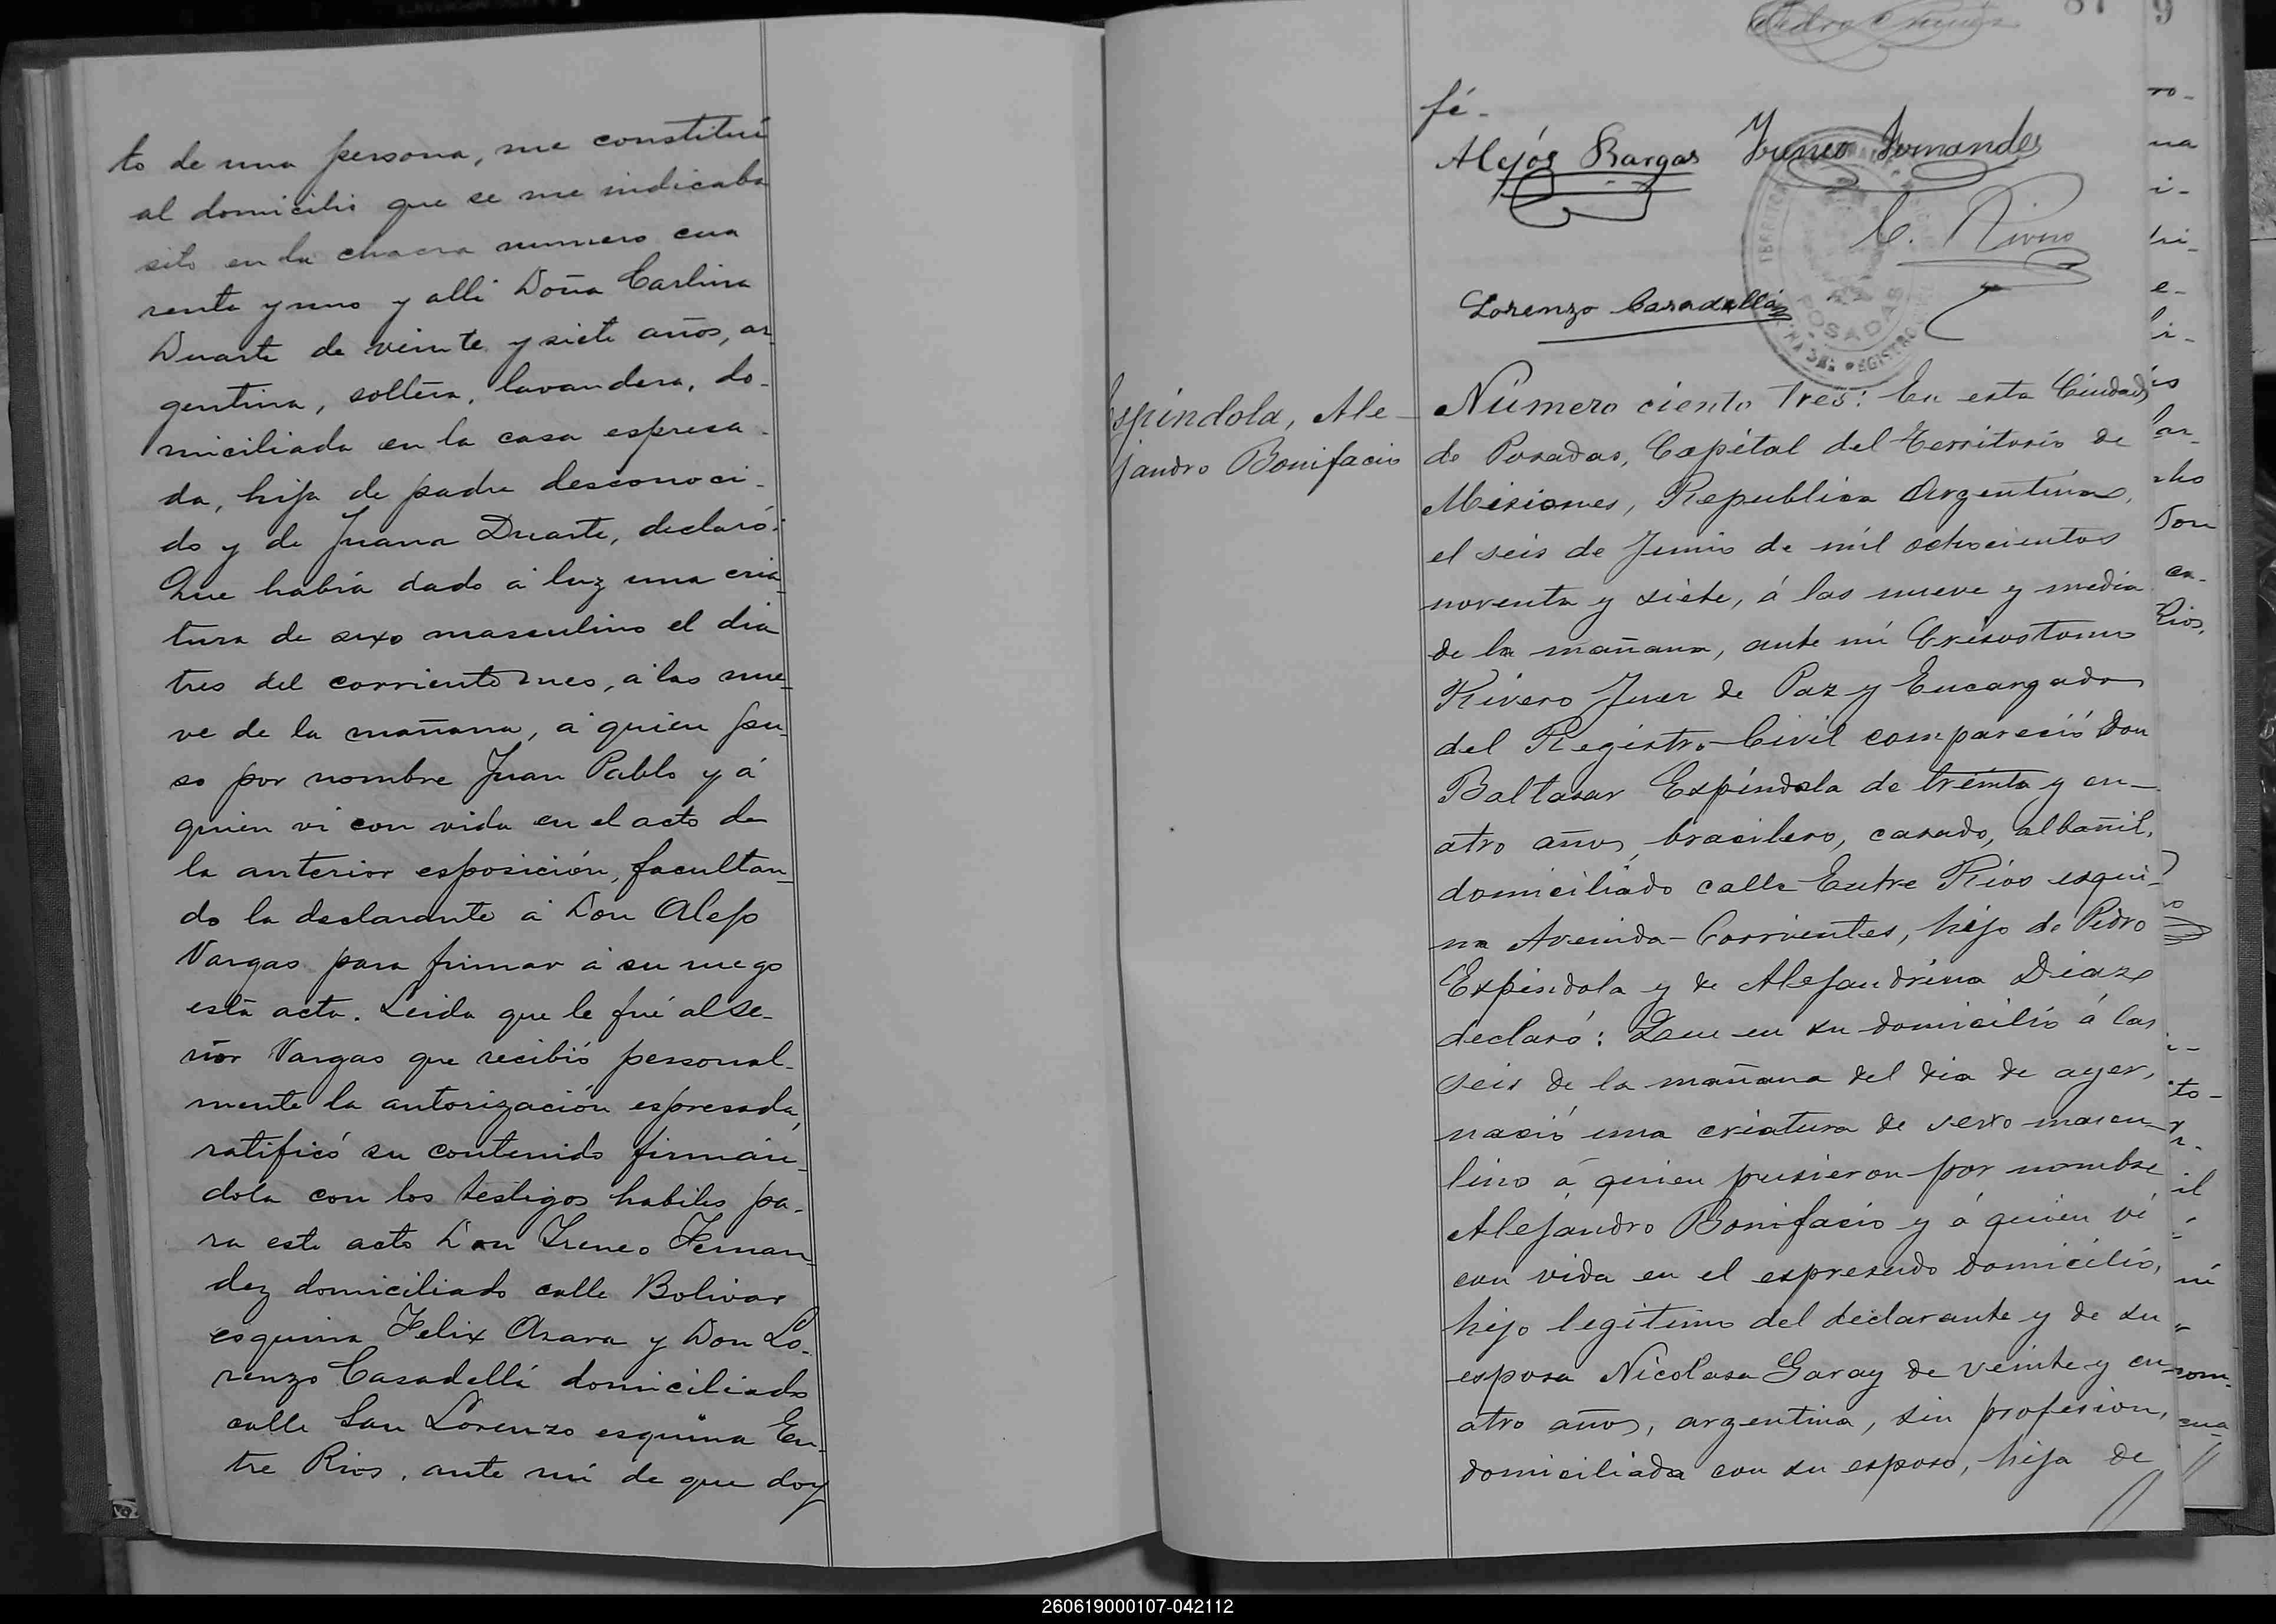 to de una persona, me constituí
al domicilio que se me indicaba
sito en la chacra numero cua
renta y uno y alli Doña Carlina
Duarte de veinte y siete años, ar
gentina, soltera, lavandera, do-
miciliada en la casa espresa-
da, hija de padre desconoci-
do y de Juana Duarte, declaró:
Que habia dado á luz una cria
tura de sexo masculino el dia
tres del corriente mes, á las nue-
ve de la mañana, á quien pu-
so por nombre Juan Pablo y á
quien vi con vida en el acto de
la anterior esposición, facultan-
do la declarante á Don Alejo
Vargas para firmar á su ruego
esta acta. Leida que le fué al Se-
ñor Vargas que recibió personal-
mente la autorización espresada,
ratificó su contenido firmán-
dola con los testigos habiles pa-
ra este acto Don Ireneo Fernan-
dez domiciliado calle Bolivar
esquina Felix Azara y Don Lo-
renzo Casadellá domiciliado
calle San Lorenzo esquina En-
tre Rios, ante mi de que doy
fé.-
Alejos Bargas Yreneo Fernandes
C. Rivero
Lorenzo Casadellá
POSADAS
Espindola, Ale-
jandro Bonifacio
Número ciento tres: En esta Ciudad
de Posadas, Capital del Territorio de
Misiones, Republica Argentina,
el seis de Junio de mil ochocientos
noventa y siete, á las nueve y media
de la mañana, ante mi Crisostomo
Rivero Juez de Paz y Encargado
del Registro Civil compareció Don
Baltasar Espíndola de treinta y cu-
atro años, brasilero, casado, albañil,
domiciliado calle Entre Rios esqui-
na Avenida Corrientes, hijo de Pedro
Espindola y de Alejandrina Diaz
declaró: Que en su domicilio á las
seis de la mañana del dia de ayer,
nació una criatura de sexo mascu-
lino á quien pusieron por nombre
Alejandro Bonifacio y á quien vi
con vida en el espresado domicilio,
hijo legitimo del declarante y de su
esposa Nicolasa Garay de veinte y cu-
atro años, argentina, sin profesion,
domiciliada con su esposo, hija de
260619000107-042112